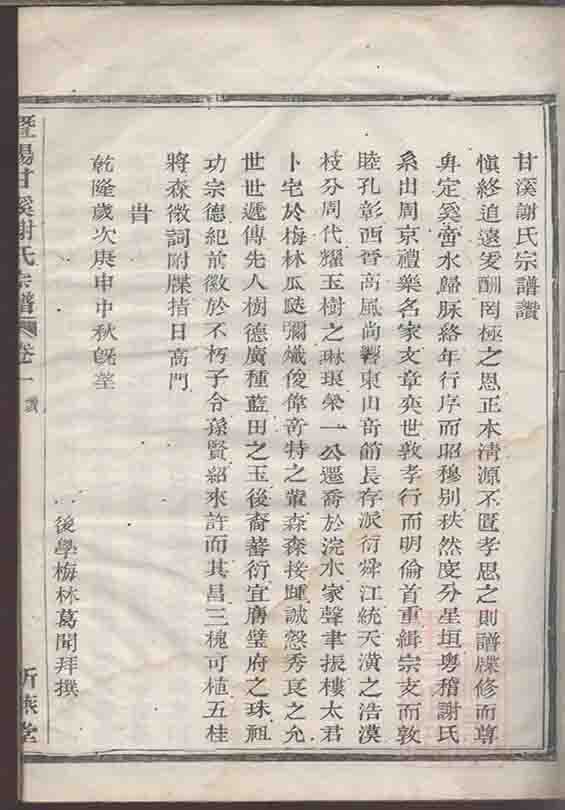 甘溪謝氏宗譜讚
愼終追遠爰酬罔極之恩正本清源不匱孝思之則譜牒修而尊
卑定奚啻水歸脉絡年行序而昭穆别秩然度分星垣粤稽謝氏
系出周京禮樂名家文章奕世敦孝行而明倫首重緝宗支而敦
睦孔彰西晋高風尚響東山竒節長存派衍舜江統天潢之浩漠
枝分周代耀玉樹之琳琅榮一公遷喬於浣水家聲聿振樓太君
卜宅於梅林瓜瓞彌熾俊偉竒特之輩森森接踵誠慤秀良之允
世世遞傳先人樹德廣種藍田之玉後裔蕃衍宜膺璧府之珠祖
功宗德紀前徽於不朽子令孫賢紹來許而其昌三槐可植五桂
將森微詞附牒指日高門
旹
乾隆歲次庚申中秋旣望
後學梅林葛聞拜撰
暨陽甘溪謝氏宗譜 卷一 讚